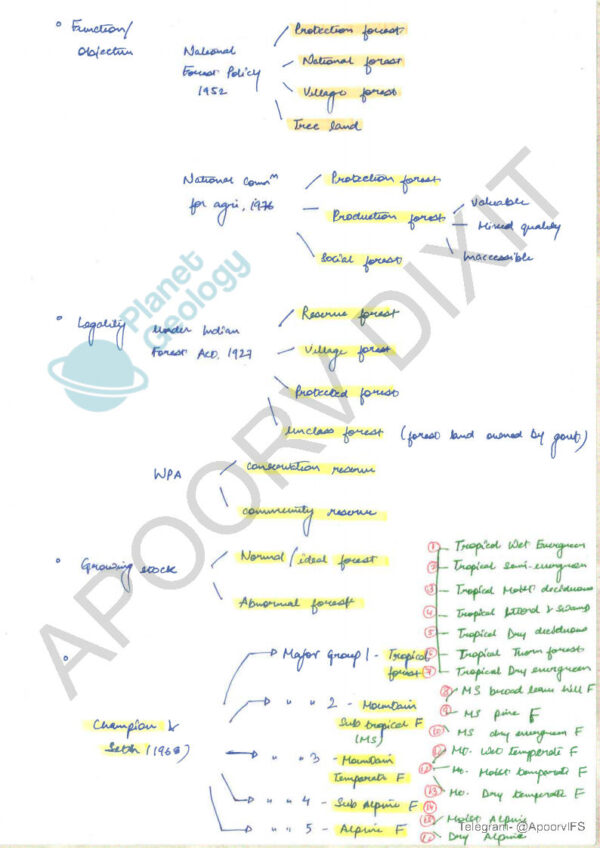 ° Function/
Objective
National
Forest Policy
1952
Protection forest
National forest
Village forest
Tree land
National Commⁿ
for agri, 1976
Protection forest
Production forest
Valuable
Mixed quality
Inaccessible
Social forest
Planet
Geology
° Legality
under Indian
Forest Act, 1927
Reserve forest
Village forest
Protected forest
Unclass forest (forest land owned by govt)
WPA
conservation reserve
community reserve
° Growing stock
Normal/ideal forest
Abnormal forest
Champion &
Seth (1968)
Major Group 1 - Tropical
forest
" " 2 - Mountain
Sub tropical F
(MS)
" " 3 - Mountain
Temperate F
" " 4 - Sub Alpine F
" " 5 - Alpine F
① Tropical Wet Evergreen
② Tropical Semi-evergreen
③ Tropical Moist deciduous
④ Tropical littoral & swamp
⑤ Tropical Dry deciduous
⑥ Tropical Thorn forest
⑦ Tropical Dry evergreen
⑧ MS broad leav hill F
⑨ MS pine F
⑩ MS dry evergreen F
⑪ Mt. Wet temperate F
⑫ Mt. Moist temperate F
⑬ Mt. Dry temperate F
⑭
⑮ Moist Alpine
Dry Alpine
APOORV DIXIT
Telegram- @ApoorvIFS